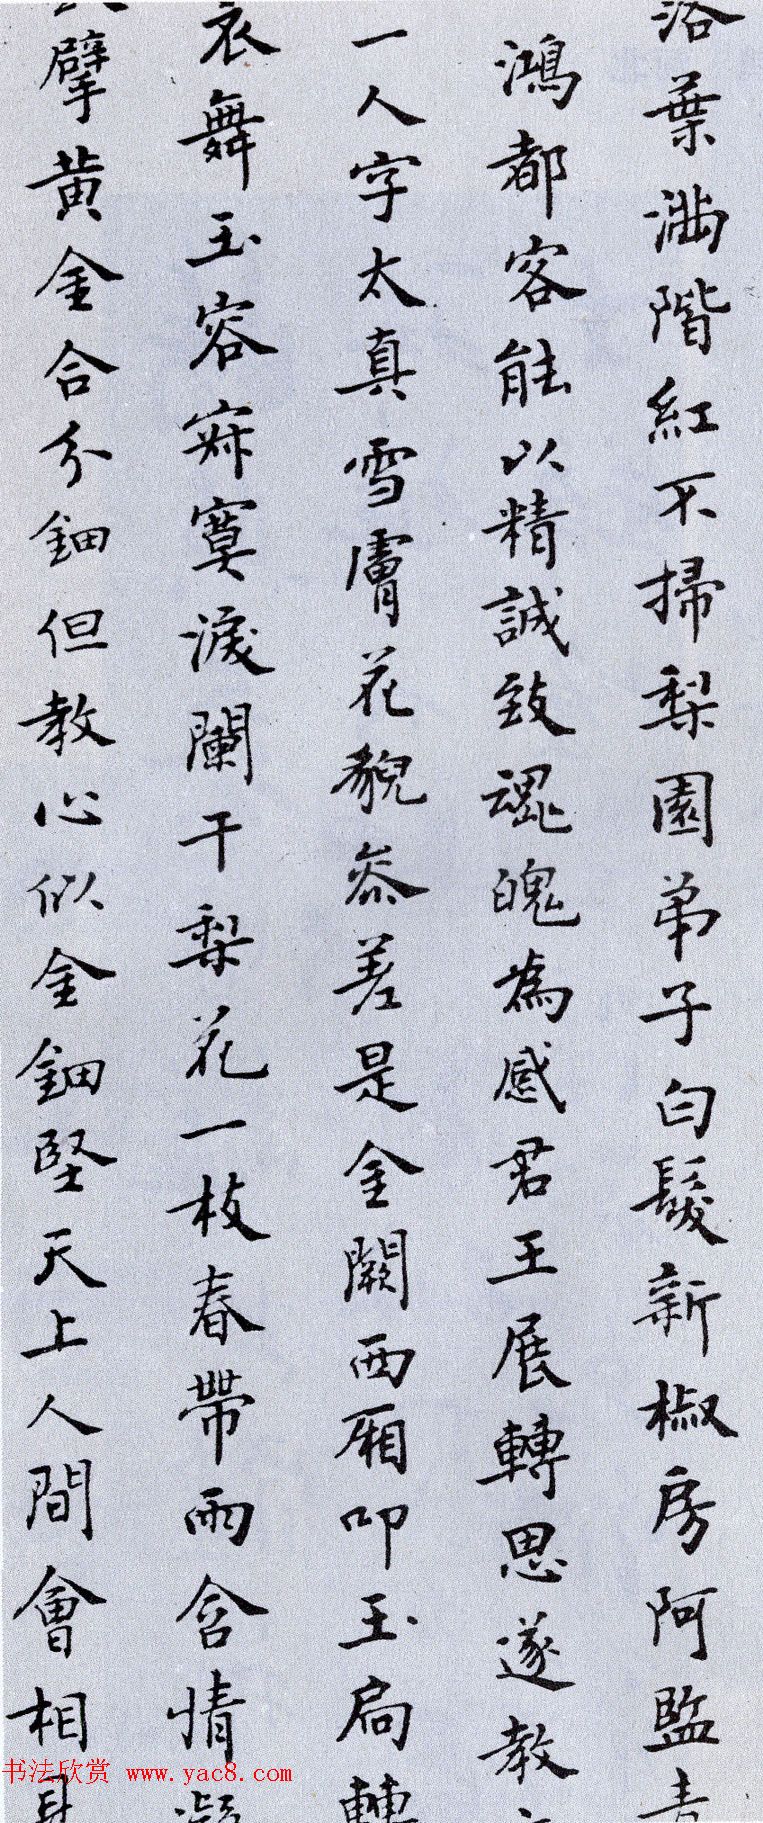 落葉滿階紅不掃梨園弟子白髮新椒房阿監青
鴻都客能以精誠致魂魄為感君王展轉思遂教
一人字太真雪膚花貌叅差是金闕西厢叩玉扃轉
衣舞玉容寂寞淚闌干梨花一枝春帶雨含情凝
擘黄金合分鈿但教心似金鈿堅天上人間會相見
书法欣赏 www.yac8.com